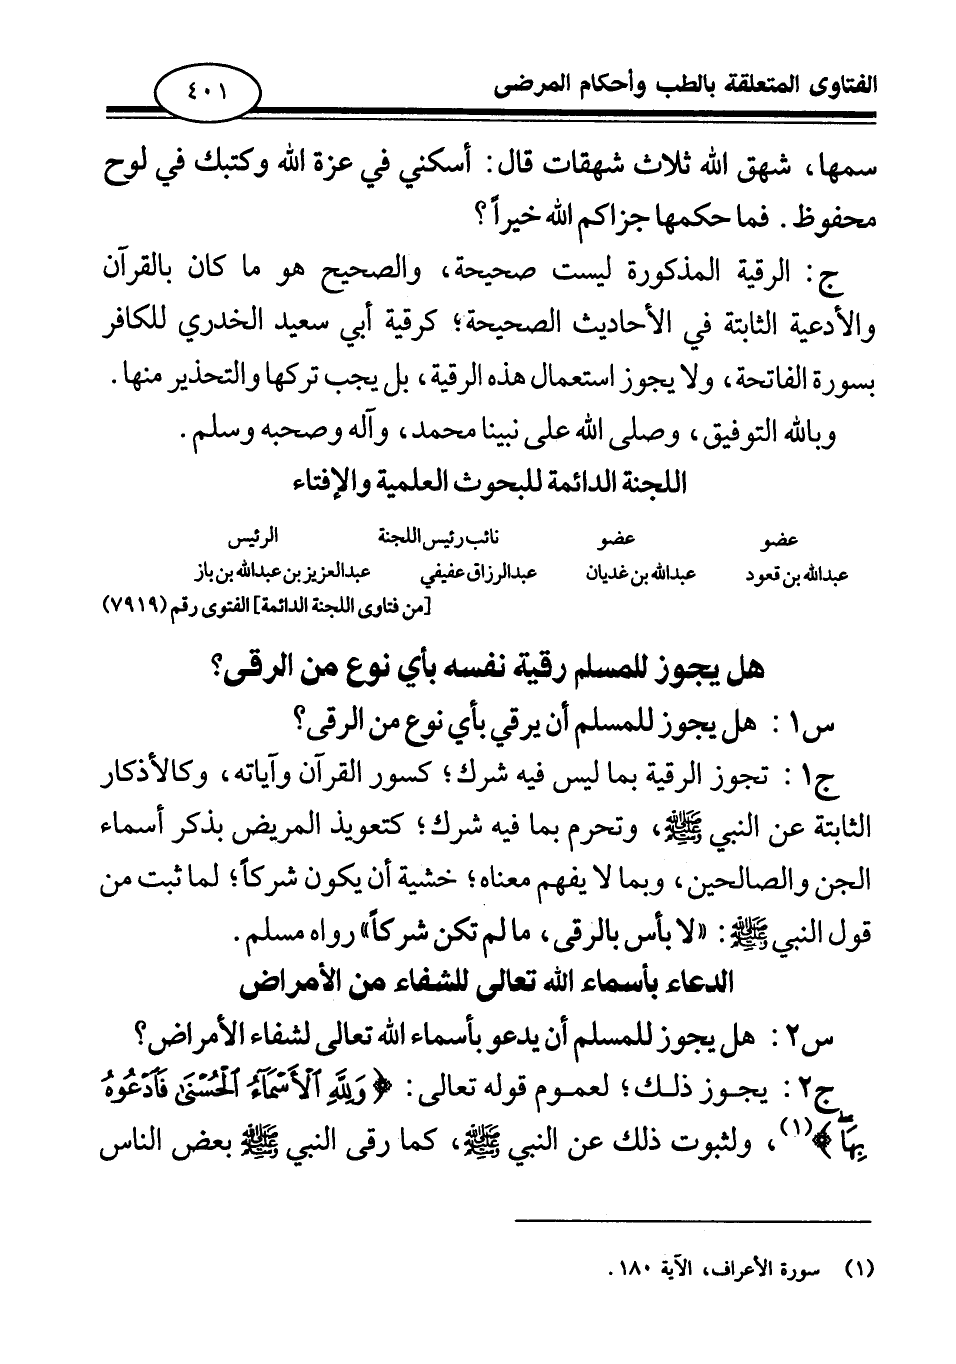 الفتاوى المتعلقة بالطب وأحكام المرضى
٤٠١
سمها، شهق الله ثلاث شهقات قال: أسكني في عزة الله وكتبك في لوح
محفوظ. فما حكمها جزاكم الله خيراً؟
ج: الرقية المذكورة ليست صحيحة، والصحيح هو ما كان بالقرآن
والأدعية الثابتة في الأحاديث الصحيحة؛ كرقية أبي سعيد الخدري للكافر
بسورة الفاتحة، ولا يجوز استعمال هذه الرقية، بل يجب تركها والتحذير منها.
وبالله التوفيق، وصلى الله على نبينا محمد، وآله وصحبه وسلم.
اللجنة الدائمة للبحوث العلمية والإفتاء
عضو عضو نائب رئيس اللجنة الرئيس
عبدالله بن قعود عبدالله بن غديان عبدالرزاق عفيفي عبدالعزيز بن عبدالله بن باز
[من فتاوى اللجنة الدائمة] الفتوى رقم (٧٩١٩)
هل يجوز للمسلم رقية نفسه بأي نوع من الرقى؟
س١: هل يجوز للمسلم أن يرقي بأي نوع من الرقى؟
ج١: تجوز الرقية بما ليس فيه شرك؛ كسور القرآن وآياته، وكالأذكار
الثابتة عن النبي ﷺ، وتحرم بما فيه شرك؛ كتعويذ المريض بذكر أسماء
الجن والصالحين، وبما لا يفهم معناه؛ خشية أن يكون شركاً؛ لما ثبت من
قول النبي ﷺ: «لا بأس بالرقى، ما لم تكن شركاً» رواه مسلم.
الدعاء بأسماء الله تعالى للشفاء من الأمراض
س٢: هل يجوز للمسلم أن يدعو بأسماء الله تعالى لشفاء الأمراض؟
ج٢: يجوز ذلك؛ لعموم قوله تعالى: ﴿وَلِلَّهِ الْأَسْمَاءُ الْحُسْنَىٰ فَادْعُوهُ
بِهَا﴾(١)، ولثبوت ذلك عن النبي ﷺ، كما رقى النبي ﷺ بعض الناس
(١) سورة الأعراف، الآية ١٨٠.